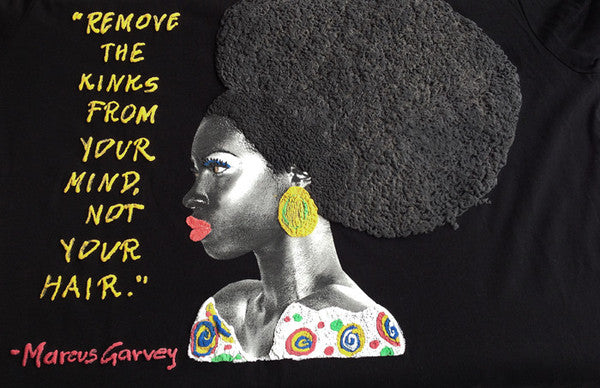 "REMOVE
THE
KINKS
FROM
YOUR
MIND,
NOT
YOUR
HAIR."
-Marcus Garvey